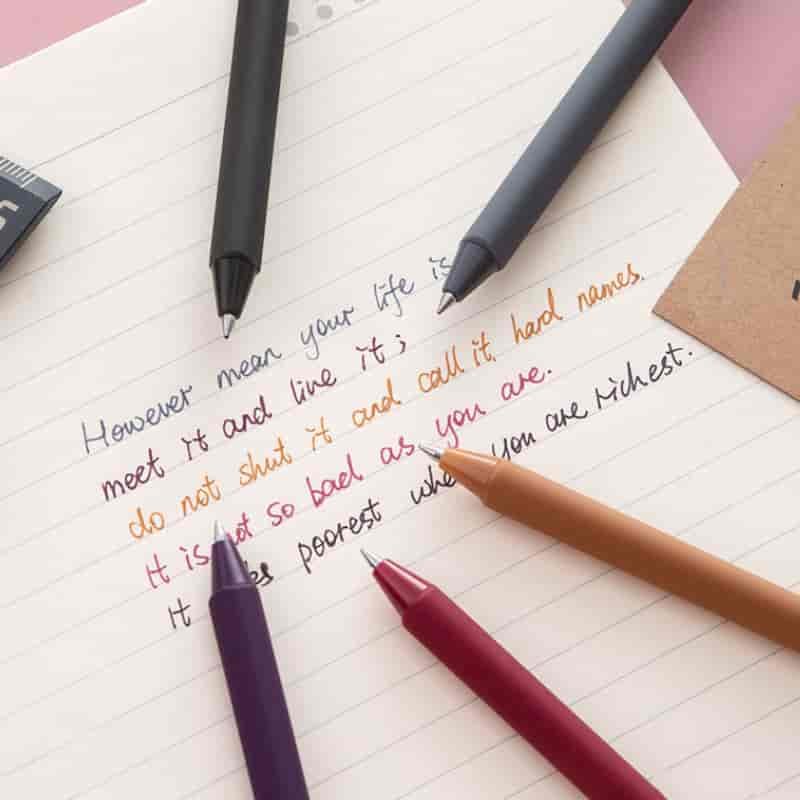 However mean your life is
meet it and live it;
do not shut it and call it hard names.
It is not so bad as you are.
It poorest when you are richest.